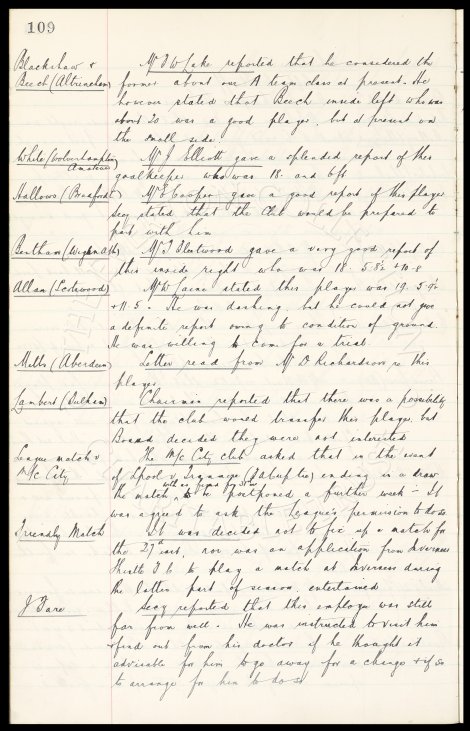 109
Blackshaw &
Beech (Altrincham)
Mr J W Lake reported that he considered the
former about our A team class at present. He
however stated that Beech inside left who was
about 20 was a good player, but at present on
the small side.
White (Wolverhampton
Amateur)
Mr J Elliott gave a splendid report of this
goalkeeper who was 18. and 6ft
Hallows (Bradford)
Mr E Cooper gave a good report of this player
Secy stated that the Club would be prepared to
part with him
Bentham (Wigan Ath)
Mr J Fleetwood gave a very good report of
this inside right who was 18. 5.8½ 10-8
Allan (Lockwood)
Mr W Laine stated this player was 19. 5.9½
+ 11.5. He was dashing but he could not give
a definite report owing to condition of ground.
He was willing to come for a trial
Mills (Aberdeen)
Letter read from Mr D Richardson re this
player
Lambert (Fulham)
Chairman reported that there was a possibility
that the club would transfer this player but
Board decided they were not interested
League match v
M/c City
The M/c City club asked that in the event
of Lpool v (Cup tie) ending in a draw
the match to be postponed a further week - It
was agreed to ask the League's permission to do so
Friendly Match
It was decided not to fix up a match for
the 27th inst, nor was an application from Inverness
Thistle F.C. to play a match at Inverness during
the latter part of season, entertained
J Fare
Secy reported that this employee was still
far from well. He was instructed to visit him
+ find out from his doctor if he thought it
advisable for him to go away for a change + if so
to arrange for him to do so